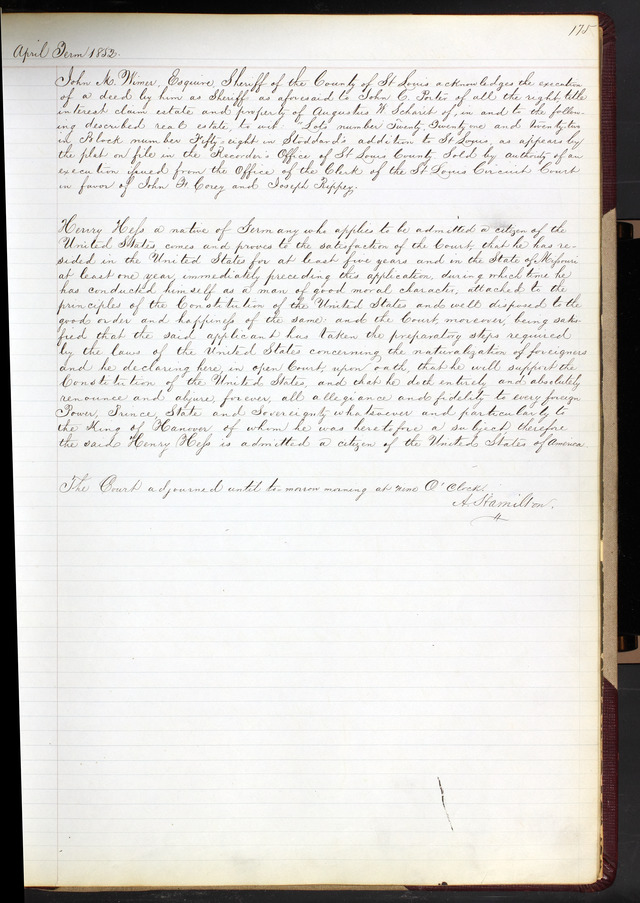 175
April Term 1852.
John M. Wimer, Esquire, Sheriff of the County of St Louis acknowledges the execution
of a deed by him as Sheriff as aforesaid to John C. Porter of all the right, title
interest claim estate and property of Augustus H. Scharit of, in and to the follow-
ing described real estate, to wit: Lots number Twenty, Twenty one and twenty two
in Block number Fifty-eight in Stoddard's addition to St Louis, as appears by
the plat on file in the Recorder's Office of St Louis County. Sold by authority of an
execution issued from the Office of the Clerk of the St Louis Circuit Court
in favor of John H Corey and Joseph Rippey.
Henry Hess a native of Germany who applies to be admitted a citizen of the
United States, comes and proves to the satisfaction of the Court, that he has re-
sided in the United States for at least five years and in the State of Missouri
at least one year, immediately preceding this application, during which time he
has conducted himself as a man of good moral character, attached to the
principles of the Constitution of the United States and well disposed to the
good order and happiness of the same: and the Court moreover, being satis-
fied that the said applicant has taken the preparatory steps required
by the laws of the United States concerning the naturalization of foreigners
and he declaring here, in open Court, upon oath, that he will support the
Constitution of the United States, and that he doth entirely and absolutely
renounce and abjure, forever, all allegiance and fidelity to every foreign
Power, Prince, State and Sovereignty whatsoever and particularly to
the King of Hanover of whom he was heretofore a subject therefore
the said Henry Hess is admitted a citizen of the United States of America
The Court adjourned until to-morrow morning at nine O'Clock.
A. Hamilton.